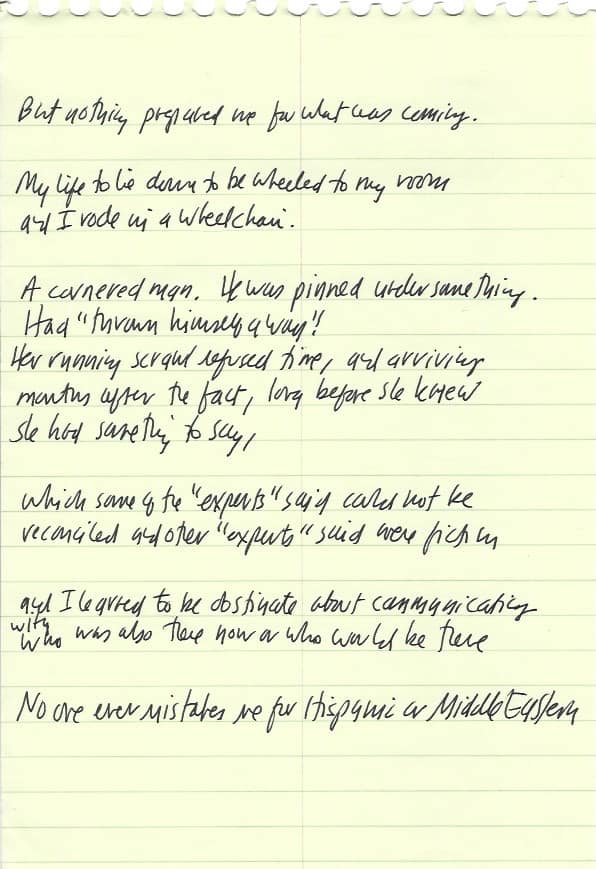 But nothing prepared me for what was coming.
My life to lie down to be wheeled to my room
and I rode in a wheelchair.
A cornered man. He was pinned under something.
Had "thrown himself away"!
Her running scrawl refused time, and arriving
months after the fact, long before she knew
she had something to say,
which some of the "experts" said could not be
reconciled and other "experts" said were fiction
and I learned to be obstinate about communicating
with
who was also there now or who would be there
No one ever mistakes me for Hispanic or Middle Eastern